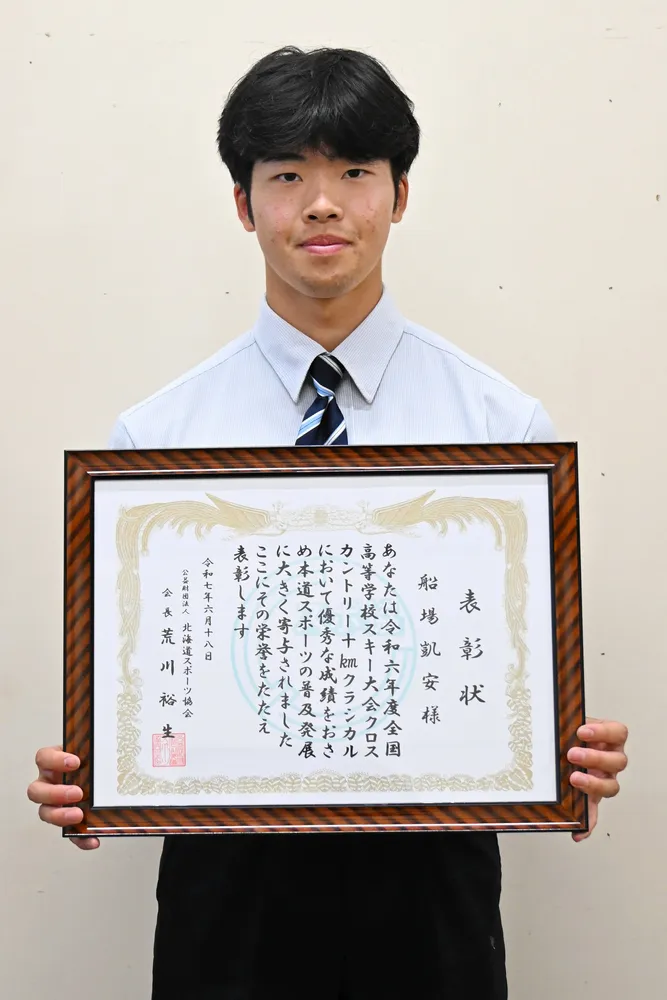 表彰状
船場凱安様
あなたは令和六年度全国
高等学校スキー大会クロス
カントリー十kmクラシカル
において優秀な成績をおさ
め本道スポーツの普及発展
に大きく寄与されました
ここにその栄誉をたたえ
表彰します
令和七年六月十八日
公益財団法人 北海道スポーツ協会
会長 荒川裕生